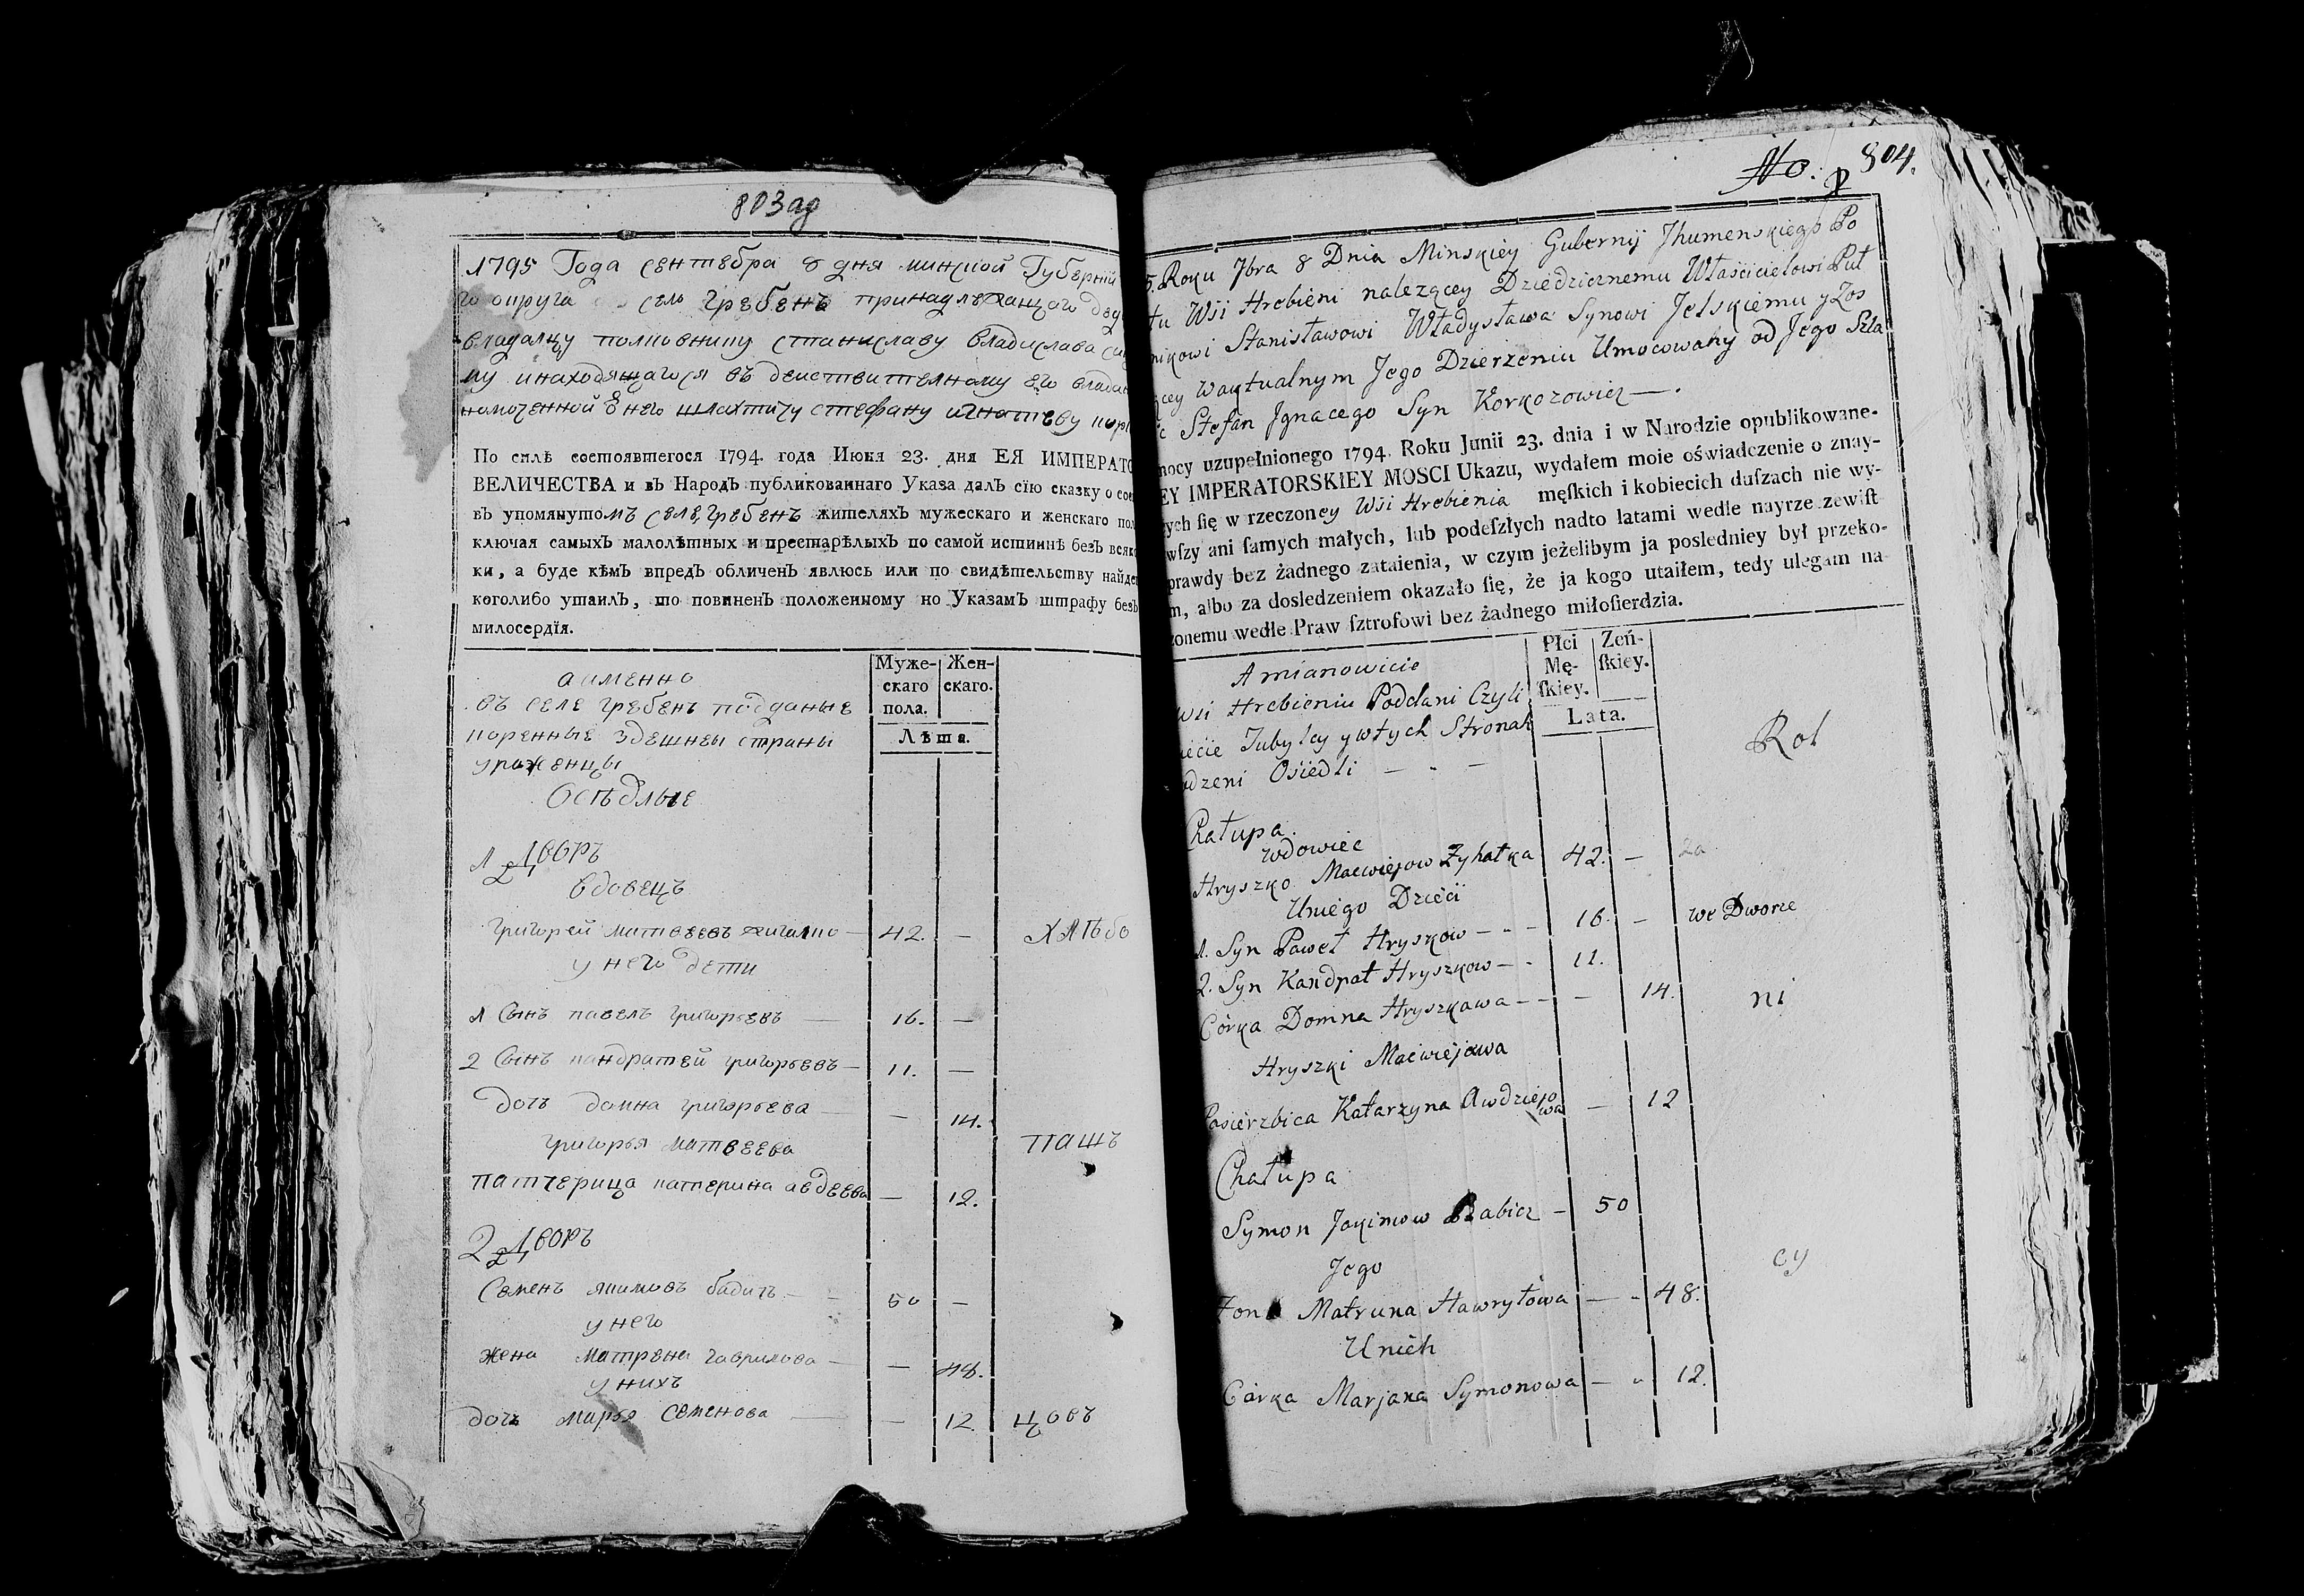 803 ад
1795 Года сентебра 8 дня минской Губерній
го округа селе гребенъ принадлежащого
владалцу полковнику станиславу владислава
му инаходящагося въ деиствителному его
номоченной него шляхтичу стефану игнатьеву
По силѣ состоявшегося 1794. года Июня 23. дня ЕЯ ИМПЕРАТО
ВЕЛИЧЕСТВА и въ Народъ публикованнаго Указа далъ сїю сказку о сос
въ упомянутомъ селе гребенъ жителяхъ мужескаго и женскаго пол
ключая самыхъ малолѣтныхъ и престарѣлыхъ по самой истиннѣ безъ всяк
ки, а буде кѣмъ впредъ обличенъ явлюсь или по свидѣтельству найде
коголибо утаилъ, то повиненъ положенному по Указамъ штрафу безъ
милосердїя.
Муже- Жен-
скаго скаго.
пола.
Лѣта.
аименно
въ селе гребенъ подданые
коренные здешнеи страны
уроженцы
Осѣдлые
1 Дворъ
вдовецъ
григорей матвеевъ жигалко — 42. — хлѣбо
у него дети
1 Сынъ павелъ григорьевъ — 16. —
2 Сынъ кандратей григорьевъ — 11. —
дочь домна григорьева — 14.
григорья матвеева пашъ
патчерица катерина авдеева — 12.
2 Дворъ
Семенъ якимовъ бабичъ — 50 —
у него
жена матрена гаврилова — — 48.
у нихъ
дочь марья семенова — — 12 цовъ
No. 804.
5. Roku 7bra 8 Dnia Minskiey Gubernij Jhumenskiego Po
tu Wsi Hrebieni nalezącey Dziedzicznemu Właścicielowi Puł
nikowi Stanisławowi Władysława Synowi Jelskiemu y Zos
ącey waktualnym Jego Dzierzeniu Umocowany od Jego Szla
ic Stefan Jgnacego Syn Korkozowicz —.
mocy uzupełnionego 1794. Roku Junii 23. dnia i w Narodzie opublikowane-
EY IMPERATORSKIEY MOSCI Ukazu, wydałem moie oświadczenie o znay-
ych ſię w rzeczoney Wsi Hrebienia męſkich i kobiecich duſzach nie wy-
wſzy ani ſamych małych, lub podeſzłych nadto latami wedle nayrze zewiſt
prawdy bez żadnego zataienia, w czym jeżelibym ja posledniey był przeko-
m, albo za dosledzeniem okazało ſię, że ja kogo utaiłem, tedy ulegam na
zonemu wedle Praw ſztrofowi bez żadnego miłoſierdzia.
Płci Zeń-
Mę- ſkiey.
ſkiey.
Lata.
A mianowicie
wsi Hrebieniu Poddani Czyli
iecie Tubylcy ywtych Stronah
odzeni Osiedli — - —
Rol
Chałupa.
wdowiec
Hryszko Macwiejow Zyhałka 42. —
Uniego Dzieci
1. Syn Paweł Hryszkow - - - 16. — we Dworze
2. Syn Kandrat Hryszkow — - 11.
Córka Domna Hryszkawa - - — 14. ni
Hryszki Maćwiejawa
Pasierzbica Katarzyna Awdziejowa — 12
Chałupa
Symon Jakimow Babicz — 50
Jego cy
Zona Matruna Hawryłowa — - 48.
Unich
Córka Marjana Symonowa — - 12.